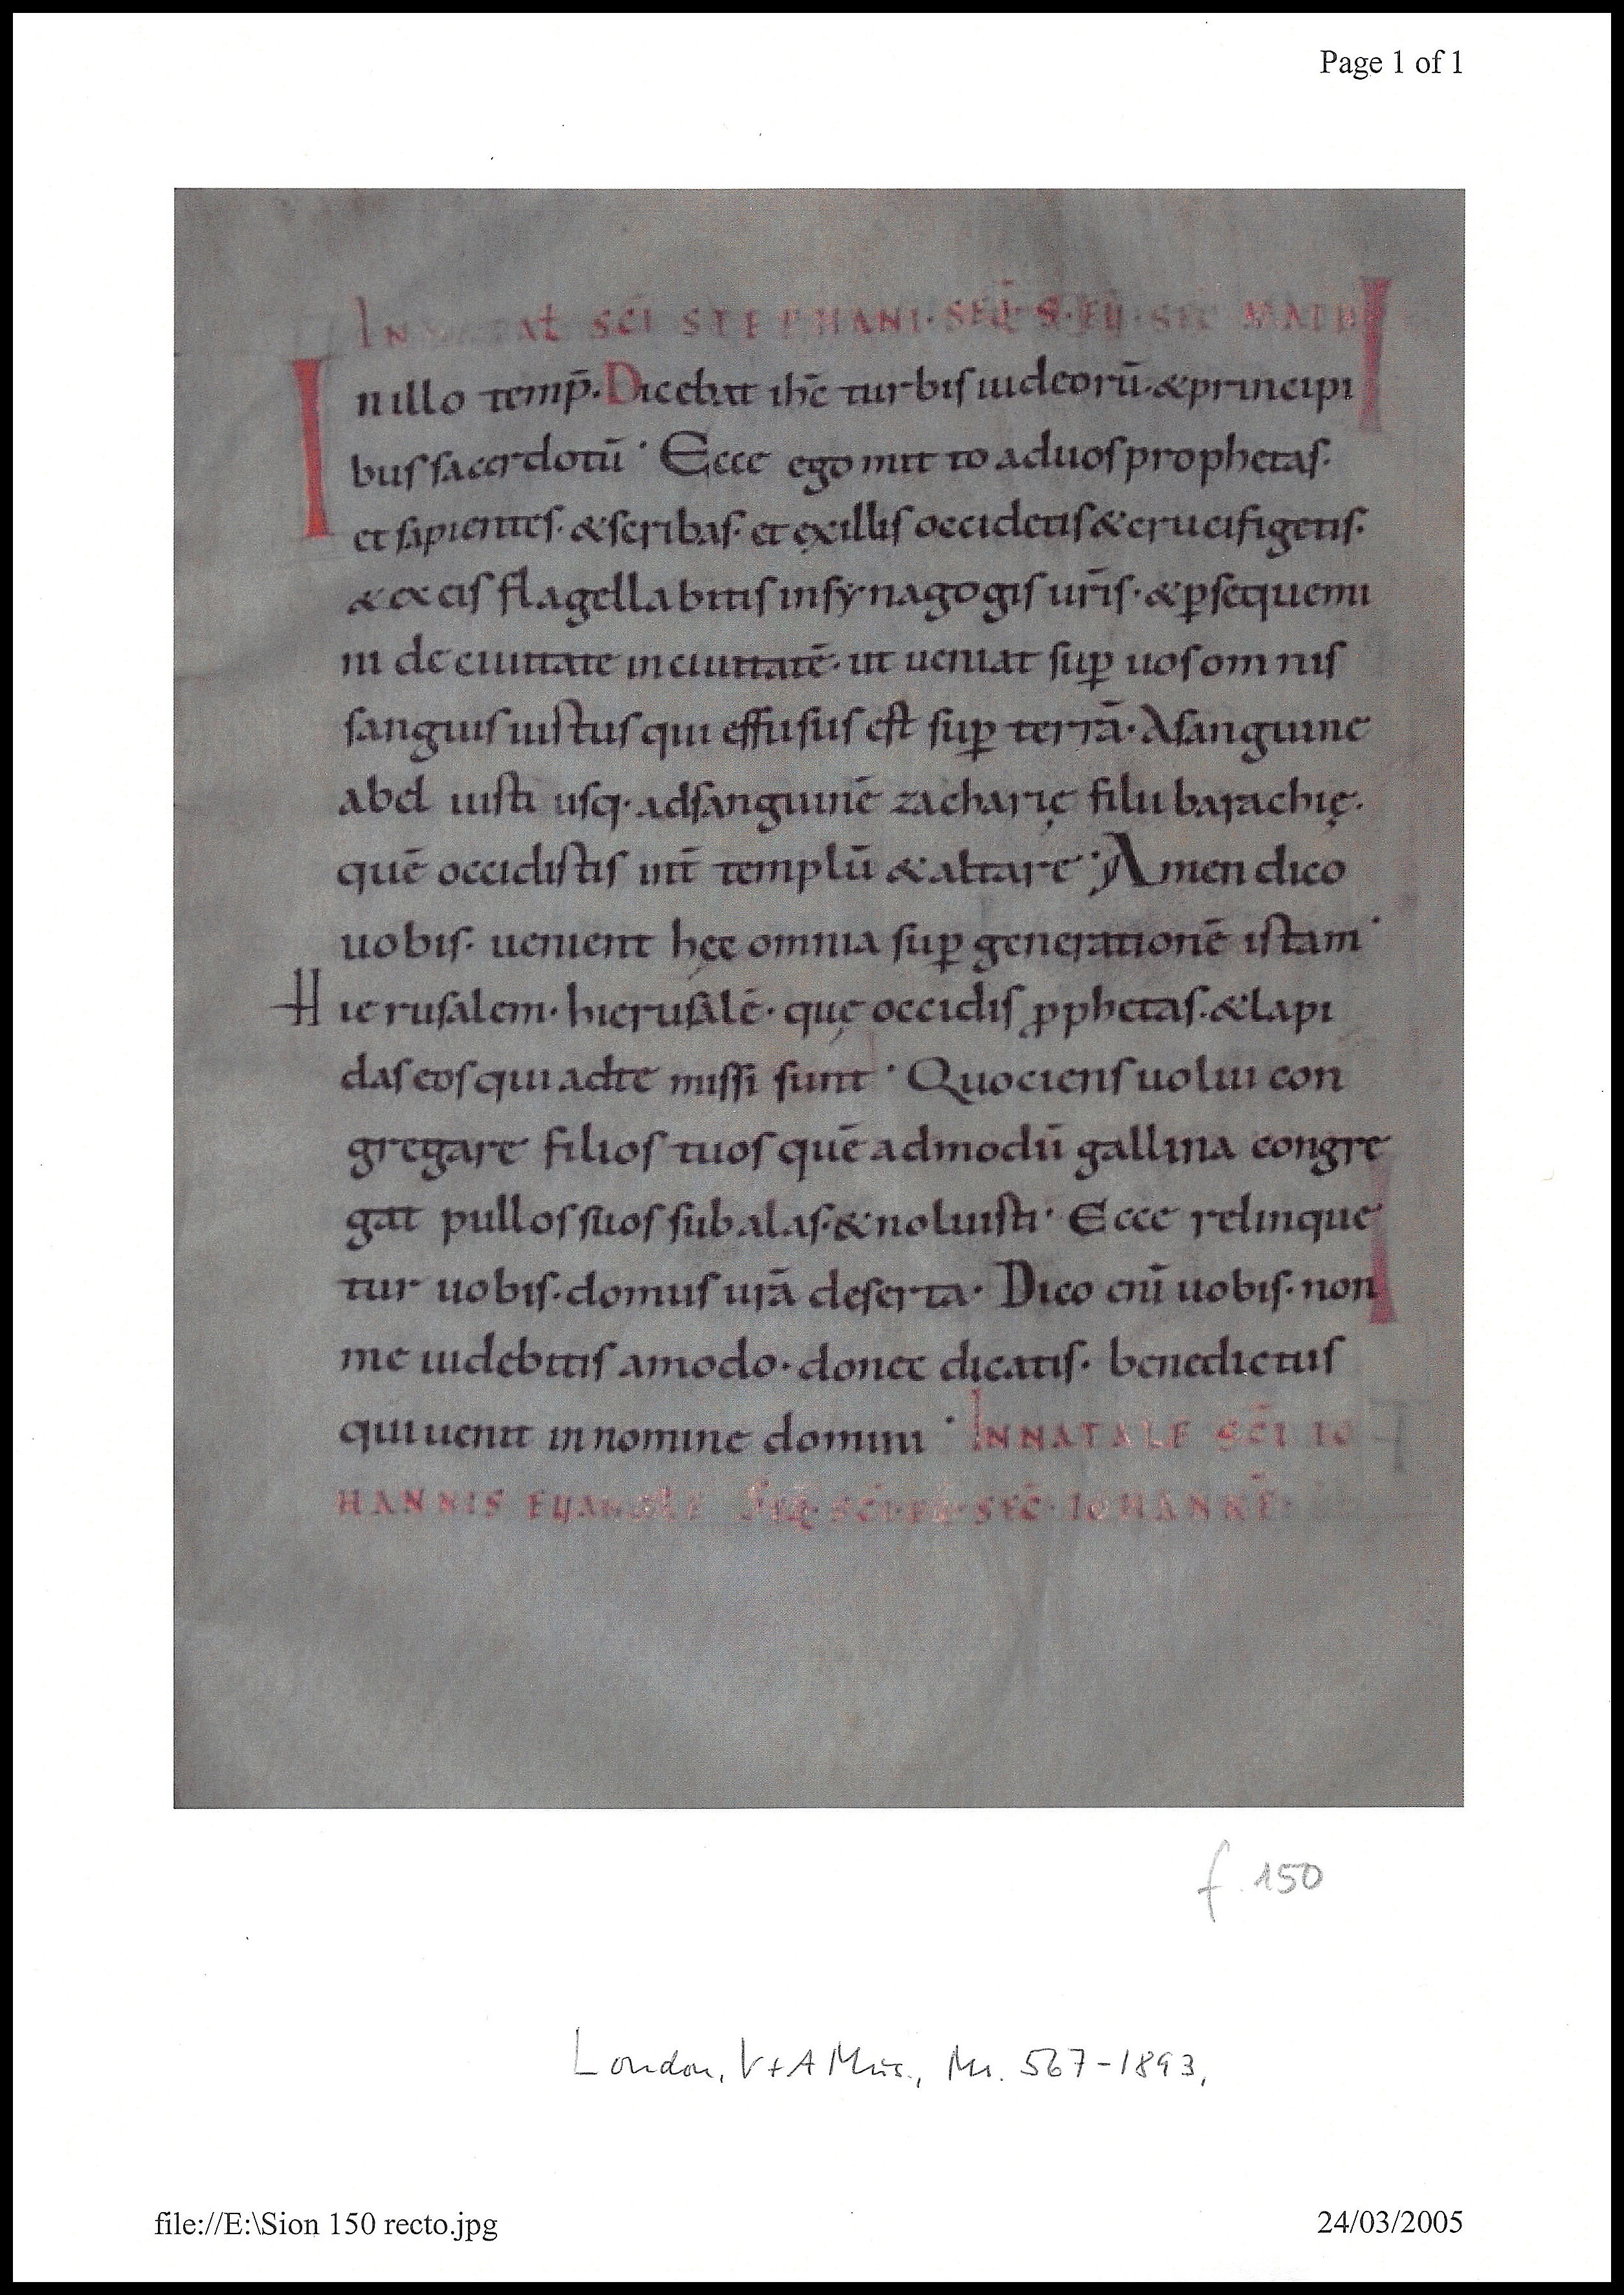 Page 1 of 1
IN NAT SCI STEPHANI · SEQ̄ · S · EV̄ · SEC MATH
In illo temp̄. Dicebat ih̄c turbis iudeorū. & principi
bus sacerdotū. Ecce ego mitto ad uos prophetas.
et sapientes. & scribas. et ex illis occidetis & crucifigetis.
& ex eis flagellabitis in synagogis ur̄is. & ꝑsequemi
ni de ciuitate in ciuitatē. ut ueniat suꝑ uos omnis
sanguis iustus qui effusus est suꝑ terrā. A sanguine
abel iusti usq. ad sanguinē zacharię filii barachię.
quē occidistis int̄ templū & altare. Amen dico
uobis. uenient hęc omnia suꝑ generationē istam.
Hierusalem. hierusalē. quę occidis ꝓphetas. & lapi
das eos qui ad te missi sunt. Quociens uolui con
gregare filios tuos quē admodū gallina congre
gat pullos suos sub alas. & noluisti. Ecce relinque
tur uobis. domus ur̄a deserta. Dico eni̅ uobis. non
me uidebitis amodo. donec dicatis. benedictus
qui uenit in nomine domini. IN NATALE SC̄I IO
HANNIS EVANGELE SEQ̄. SC̄I. EV̄. SEC̄. IOHANNĒ.
f. 150
London, V+A Mus., Ms. 567-1893,
file://E:\Sion 150 recto.jpg
24/03/2005